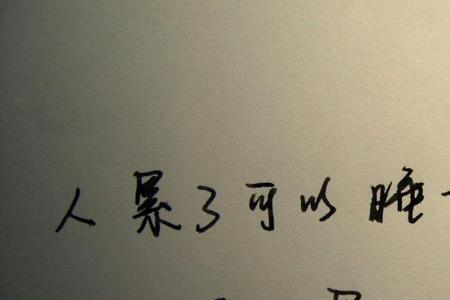 人累了可以睡